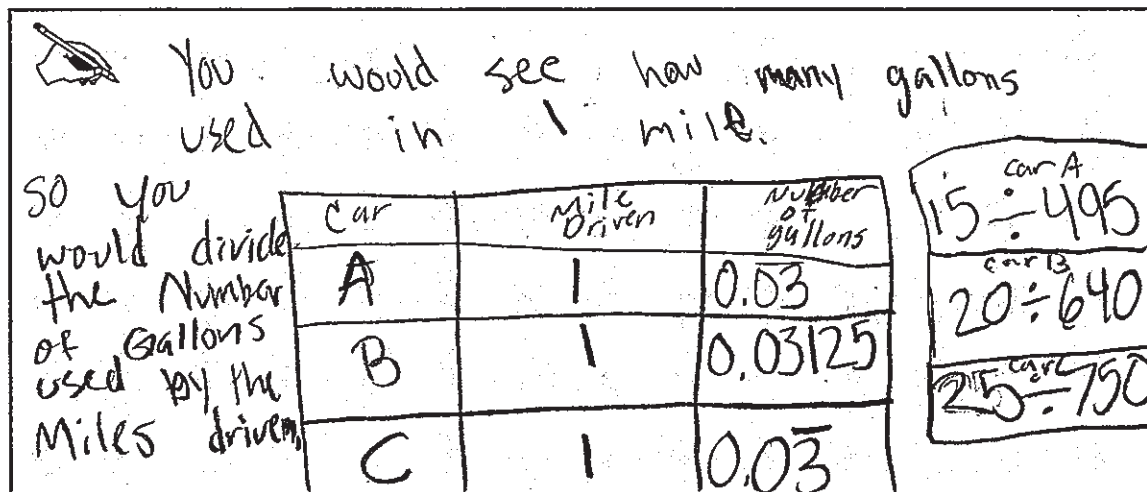 You would see how many gallons
used in 1 mile.
so you
would divide
the Number
of Gallons
used by the
Miles driven.
Car Mile Driven Number of gallons
A 1 0.0̅3̅
B 1 0.03125
C 1 0.03̅
car A
15÷495
car B
20÷640
car C
25÷750